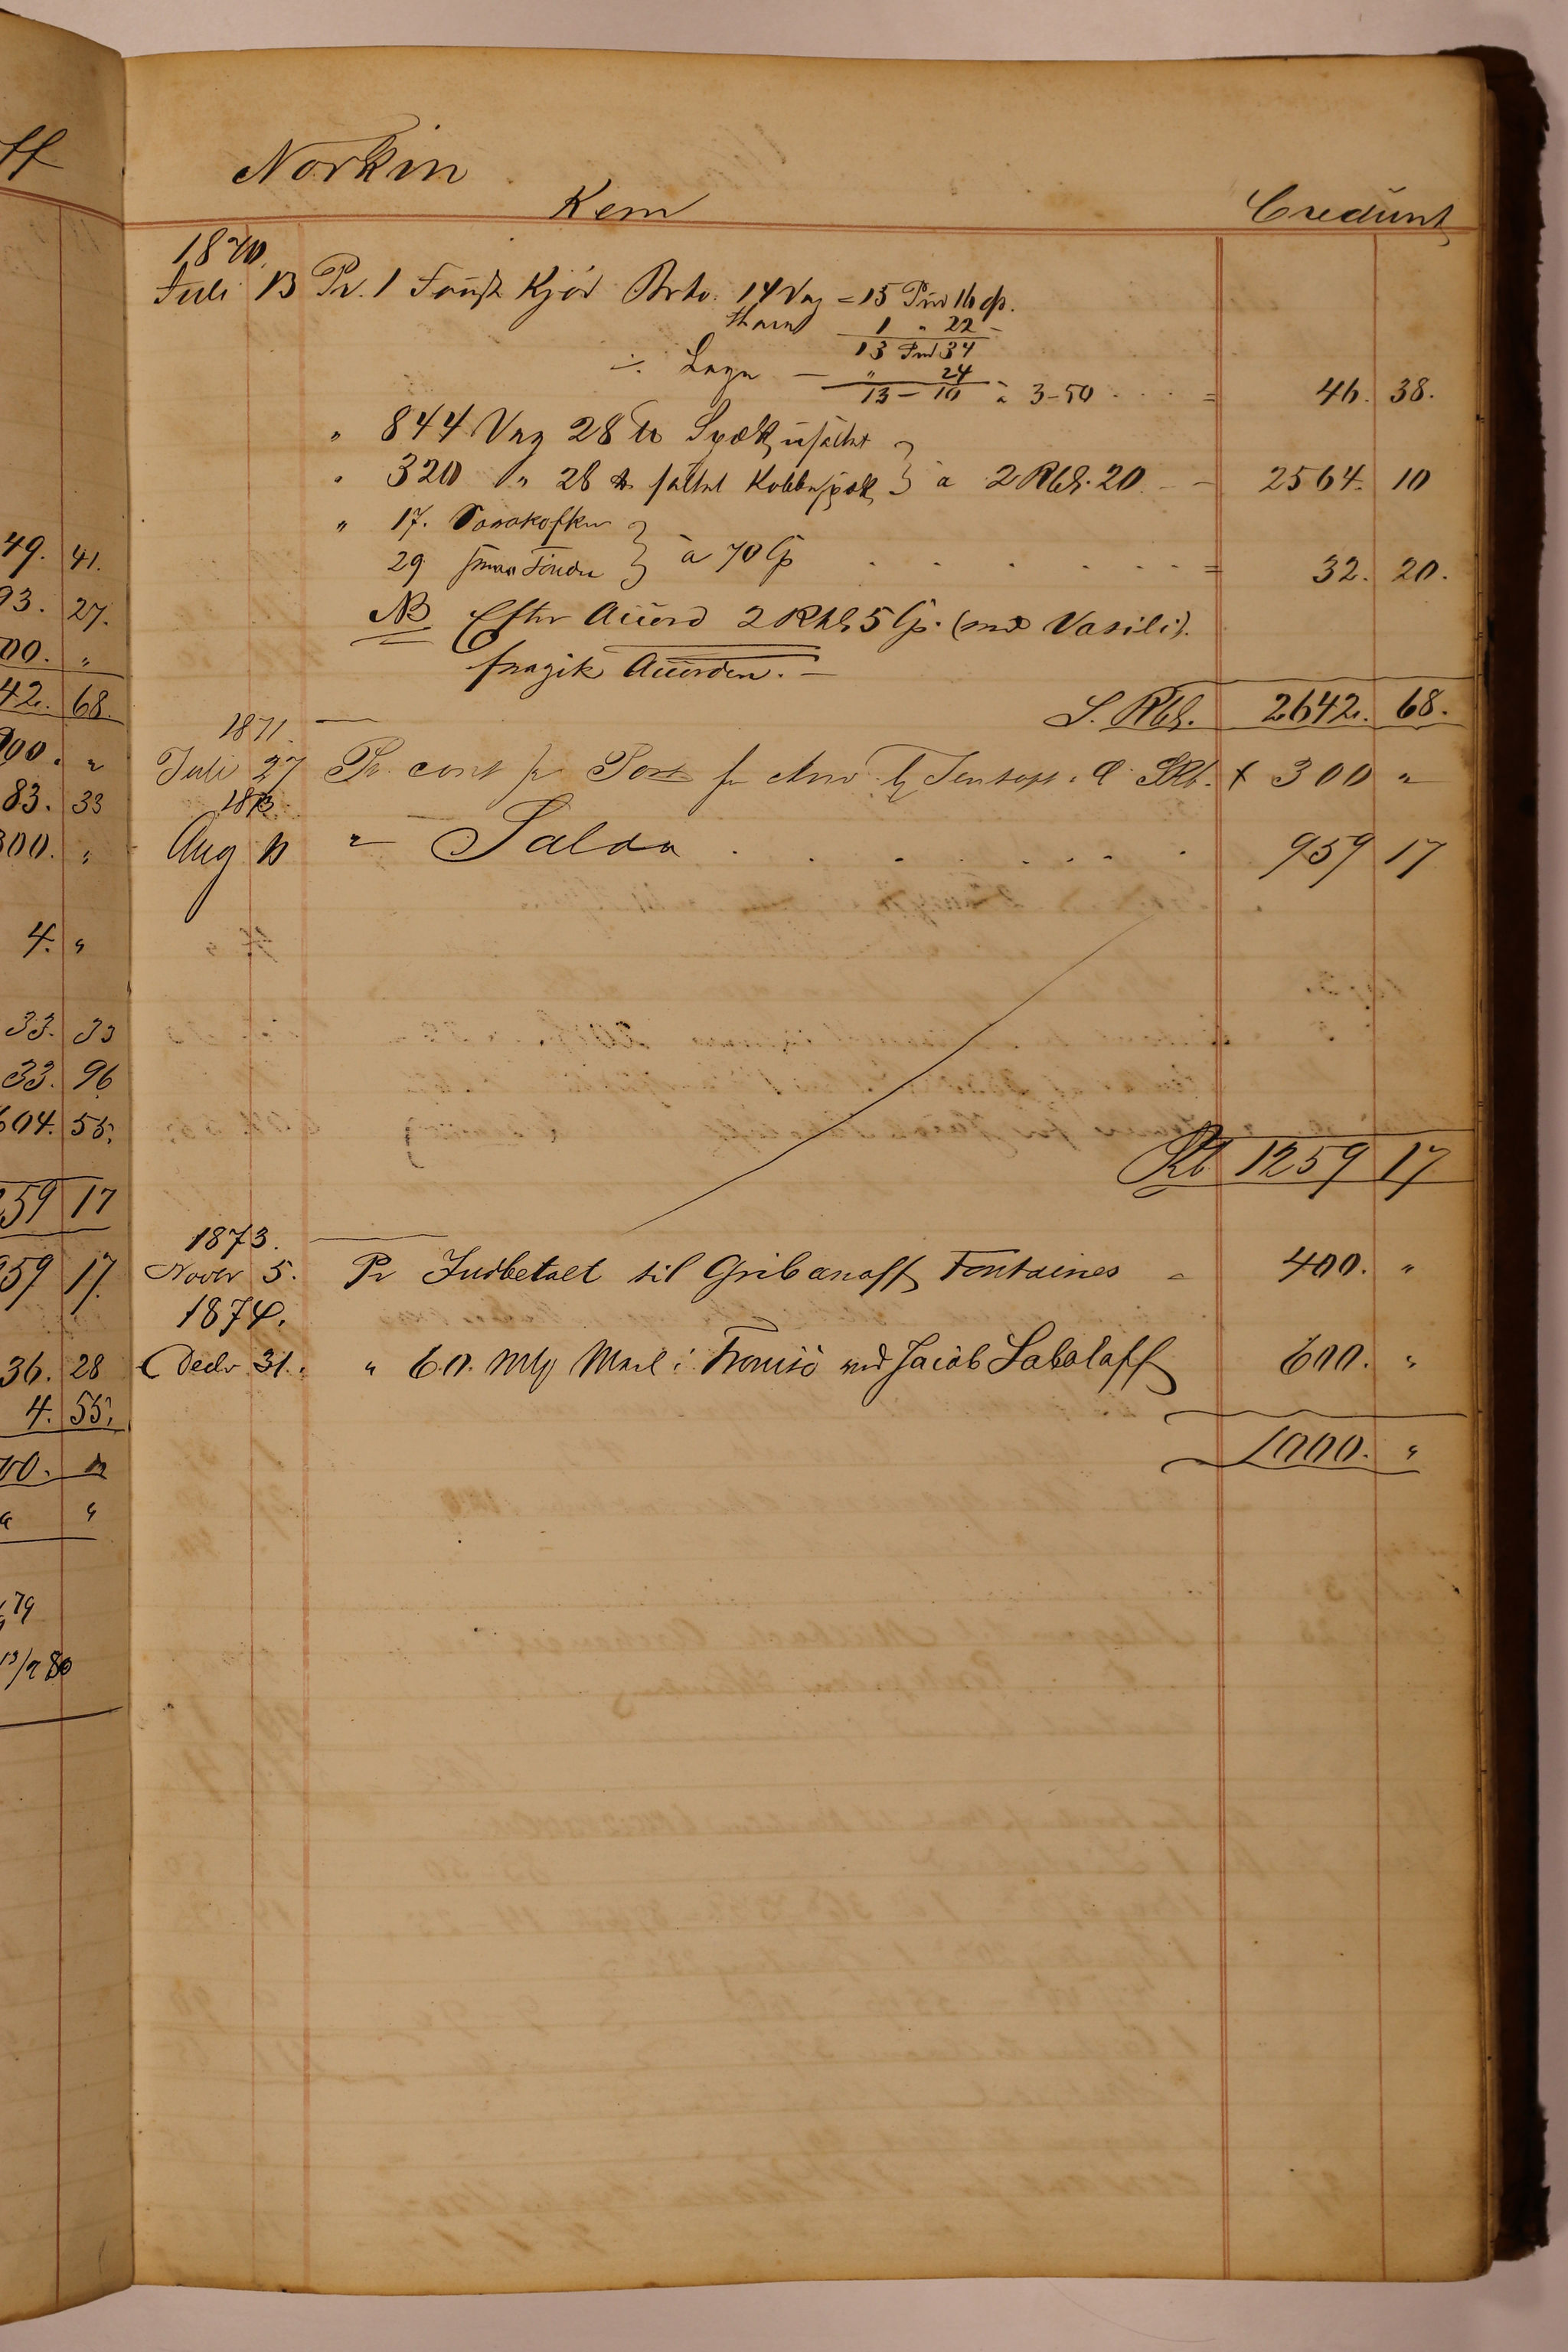 ff
Norkin
Kem Credunt
1870.
Juli 13 Pr. 1 Kjød Brto. 14 Vog = 15 Pud 16 
1 " 22 -
13 Pud 34
÷ Lage - " 24
13 - 10 a 3-50 = 46. 38.
" 844 Vog 28 Spæk usaltet
" 320 " 28 saltet Kobbespæk } a 2 Rbl. 20 - - 2564. 10
" 17.
29 smaa Tønder } a 70 = 32. 20.
NB Efter Accord 2 Rbl 5 (med Vasili).
fragik Accorden. -
S. Rbl. 2642. 68.
1871.
Juli 27 Pr. cont pr Post S Rb. X 300 "
1873.
Aug " Saldo 959 17
Rb 1259 17
1873.
Novbr 5. Pr Indbetalt til Gribanoff Fontaines " 400. "
1874.
Decbr 31. " 60. Mel i Tromsö ved Jacob Sabolaff 600. "
1000. "
49. 41.
93. 27.
00. "
42. 68.
00. "
83. 33
300. "
4. "
33. 33
33. 96
604. 55.
259 17
959 17.
36. 28
4. 55.
00. "
" "
79
13/2 80